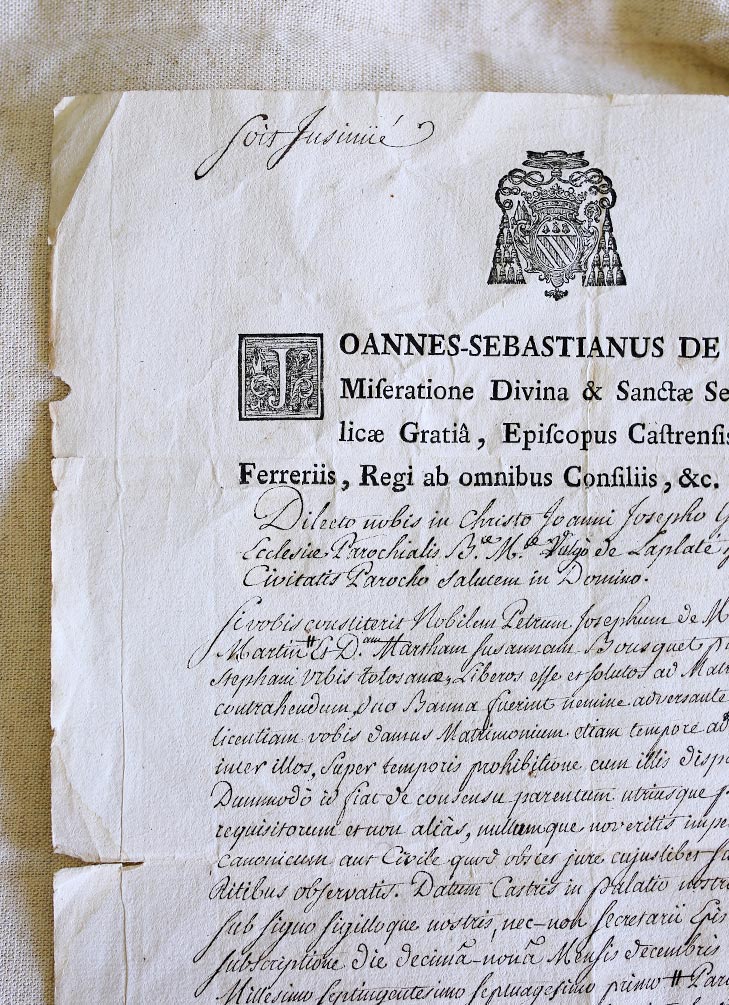 soit Jnsinüé
JOANNES-SEBASTIANUS DE
Miſeratione Divina & Sanctæ Se
licæ Gratiâ, Epiſcopus Caſtrenſis
Ferreriis, Regi ab omnibus Conſiliis, &c.
Dilecto nobis in Christo Joanni Josepho G
Ecclesiæ Parochialis B.æ M.æ Vulgo de Laplaté
Civitatis Parocho salutem in Domino.
Si vobis constiterit Nobilem Petrum Josephum de M
Martin # Et D.am Martham Susannam Bousquet p
Stephani Urbis tolosanæ, Liberos esse et solutos ad Matr
contrahendum, duo Banna fuerint nemine adversante
licentiam vobis damus Matrimonium etiam tempore ad
inter illos, super temporis prohibitione cum illis dispe
Dummodò id fiat de consensu parentum utriusque p
requisitorum et non aliàs, nullumque noveritis impe
canonicum aut Civile quod obstet jure cujuslibet sa
Ritibus observatis. Datum Castris in palatio nostro
sub signo sigilloque nostris, nec-non secretarii Epis
subscriptione die decimâ-nonâ Mensis decembris
Millesimo septingentesimo septuagesimo primo # Par